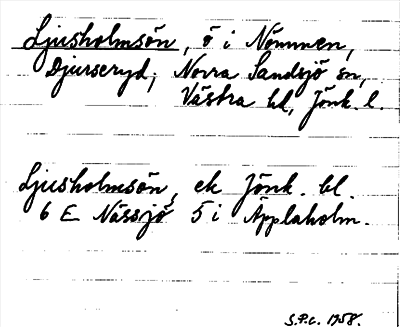 Ljusholmsön, ö i Nömmen,
Djurseryd, Norra Sandsjö sn,
Västra hd, Jönk. l.
Ljusholmsön, ek Jönk. bl.
6 E Nässjö 5 i Äpplaholm.
S.P.C. 1958.